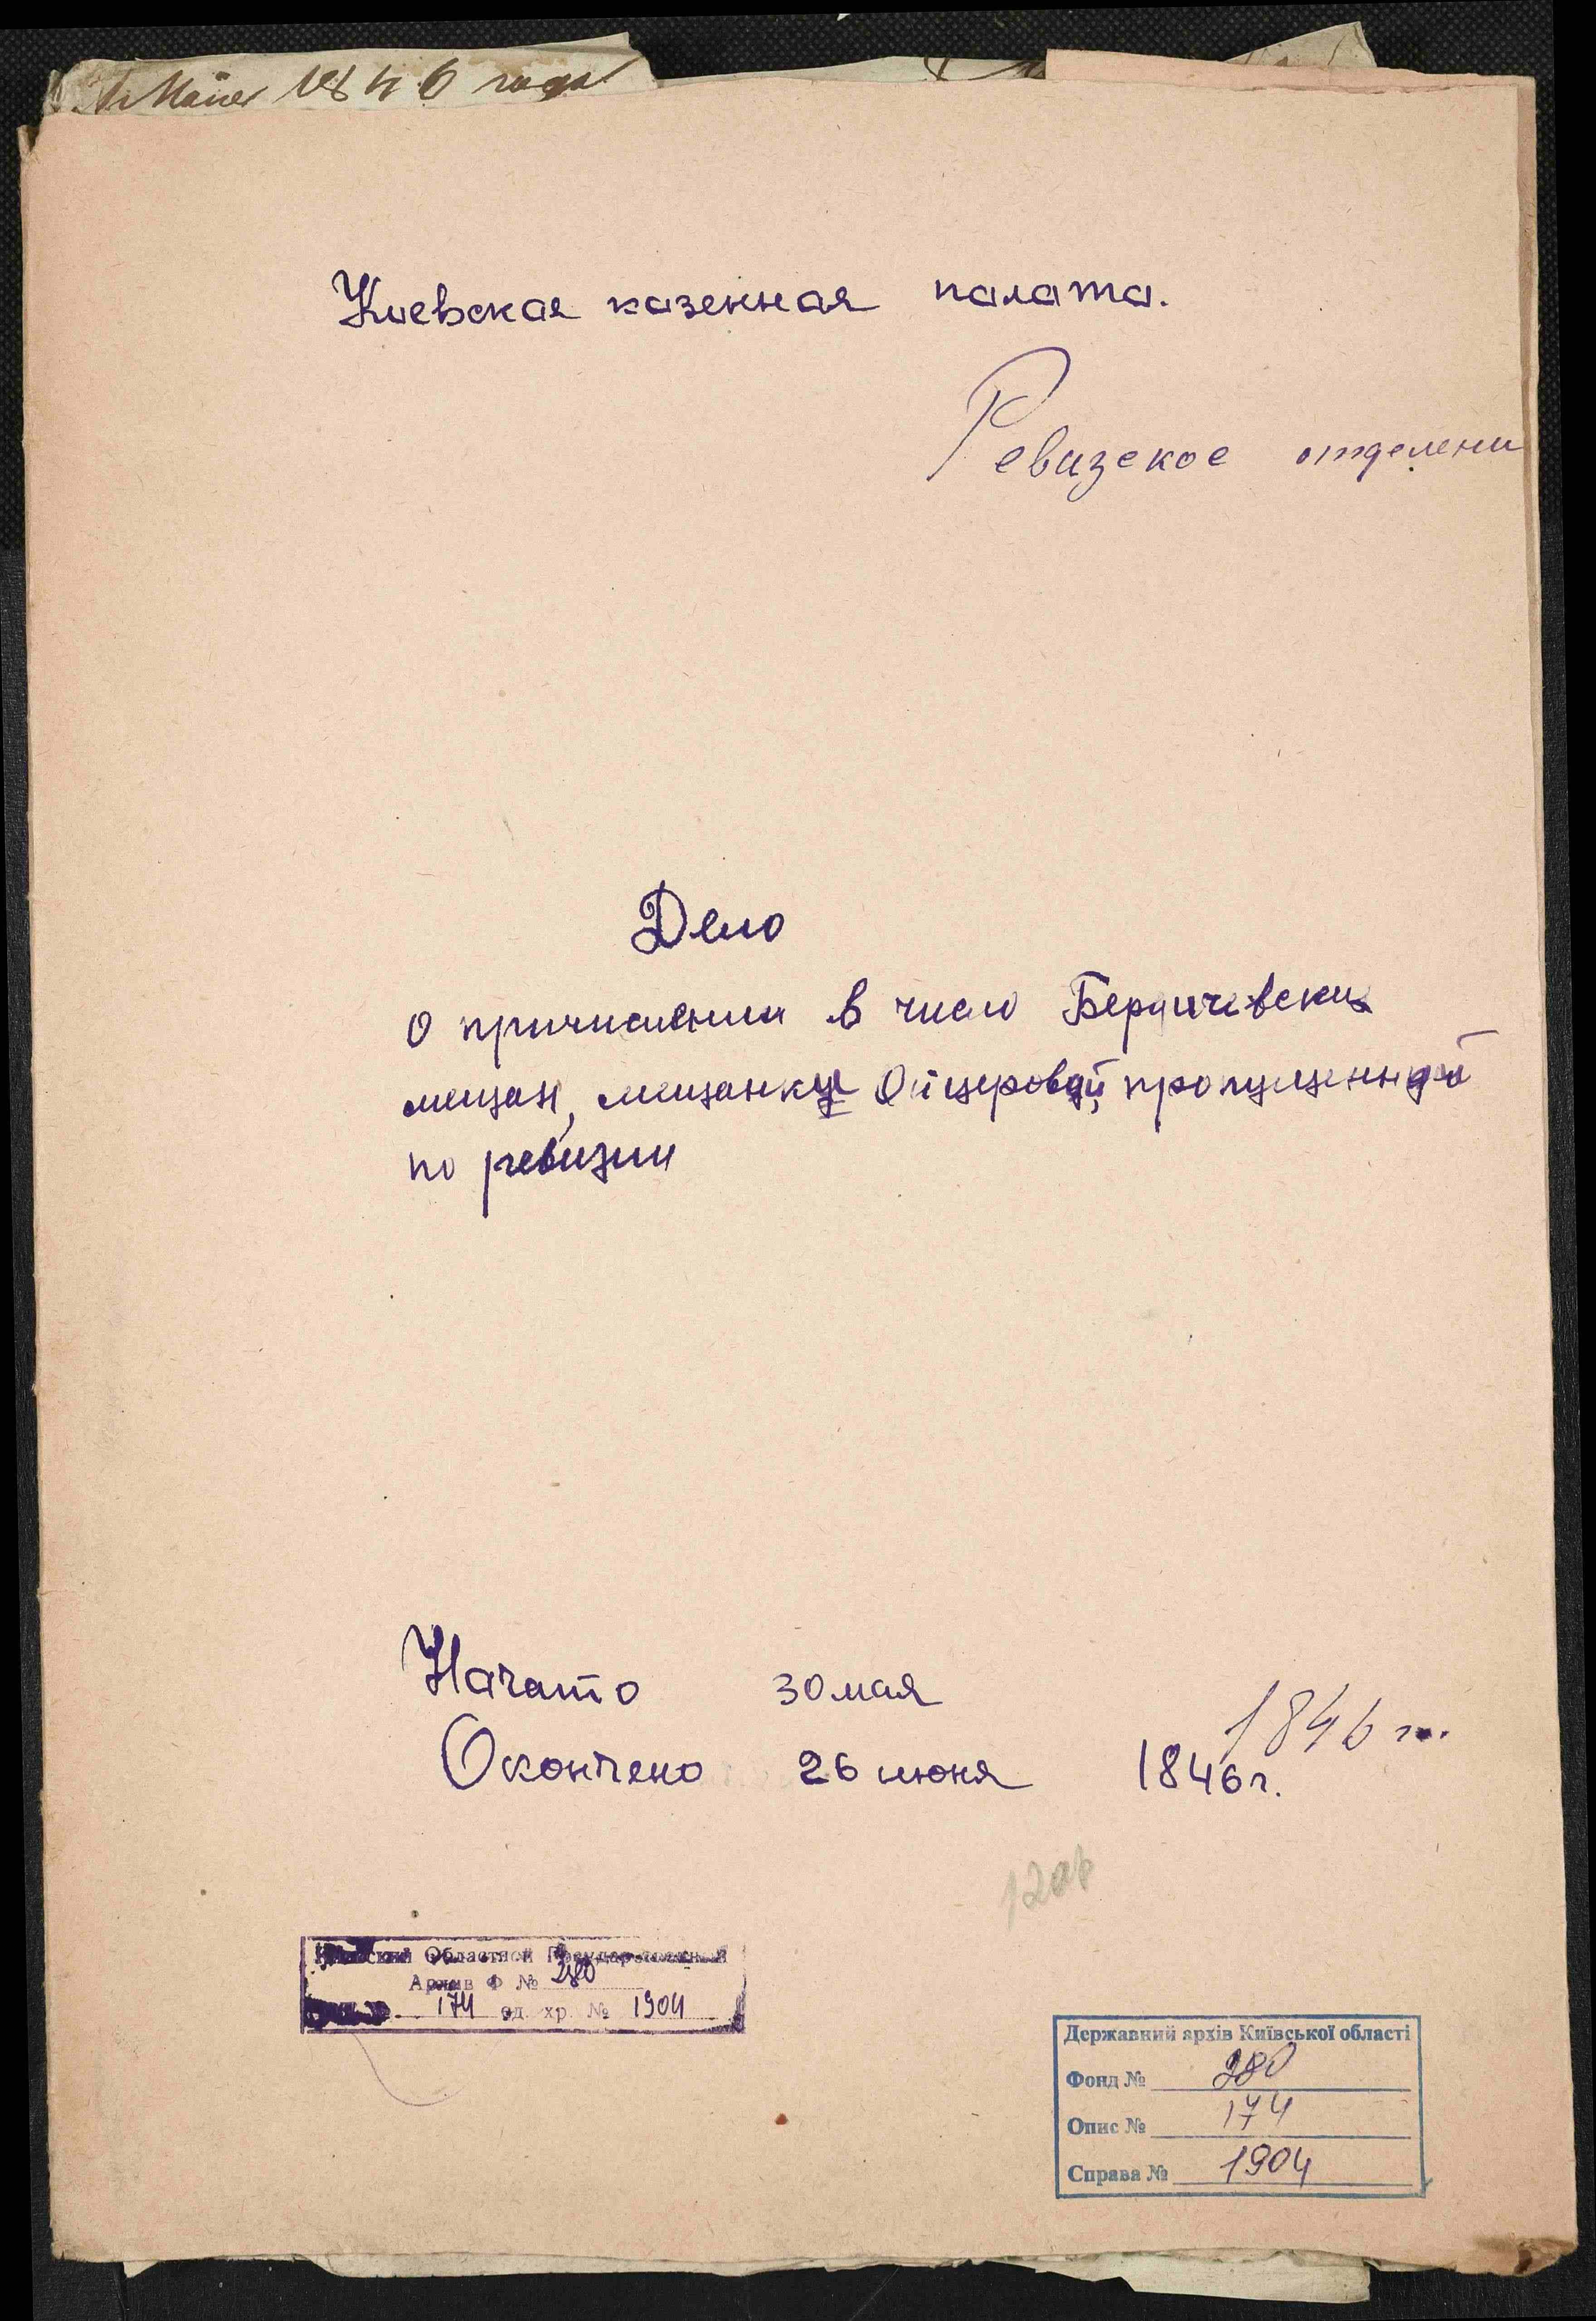 Мая 1846 года
Киевская казенная палата.
Ревизское отделени
Дело
О причислении в число Бердичевских
мещан, мещанку Ойцеровой, пропущенной
по ревизии
Начато 30 мая
1846 г.
Окончено 26 июня 1846 г.
1206
Областной Государственный
Архив Ф № 280
174 ед. хр. № 1904
Державний архів Київської області
Фонд № 280
Опис № 174
Справа № 1904